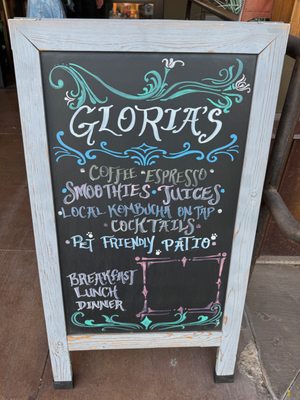 GLORIA'S
COFFEE · ESPRESSO
SMOOTHIES · JUICES
LOCAL KOMBUCHA ON TAP
COCKTAILS
PET FRIENDLY PATIO
BREAKFAST
LUNCH
DINNER